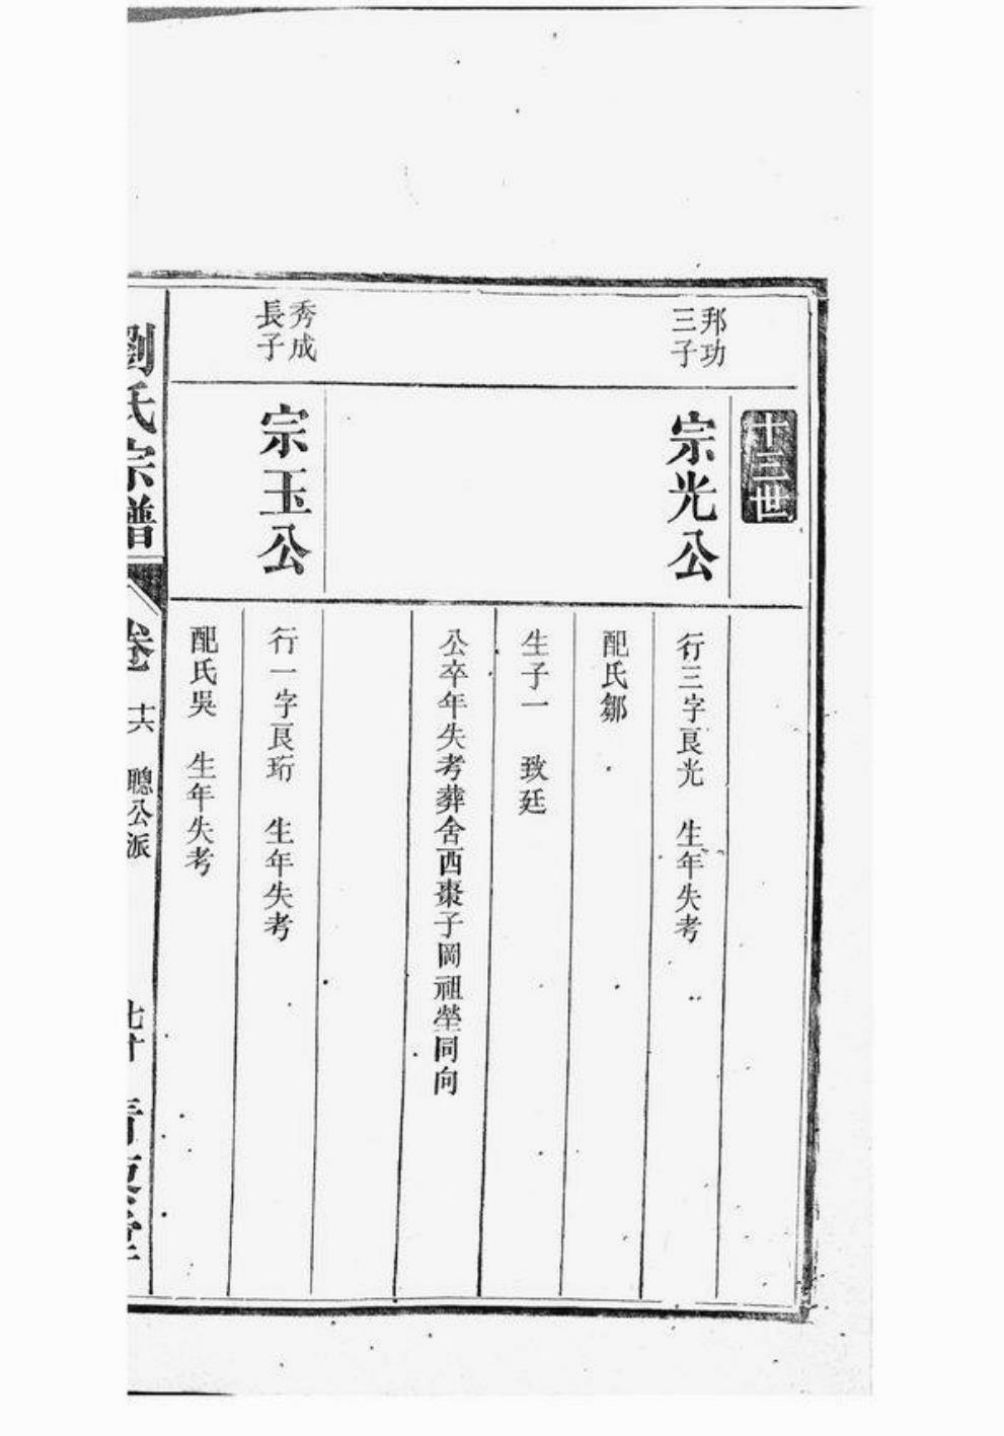 十三世
邦功
三子
宗光公
行三字良光 生年失考
配氏鄒
生子一 致廷
公卒年失考葬舍西棗子岡祖塋同向
秀成
長子
宗玉公
行一字良珩 生年失考
配氏吳 生年失考
劉氏宗譜
卷 十六 聰公派